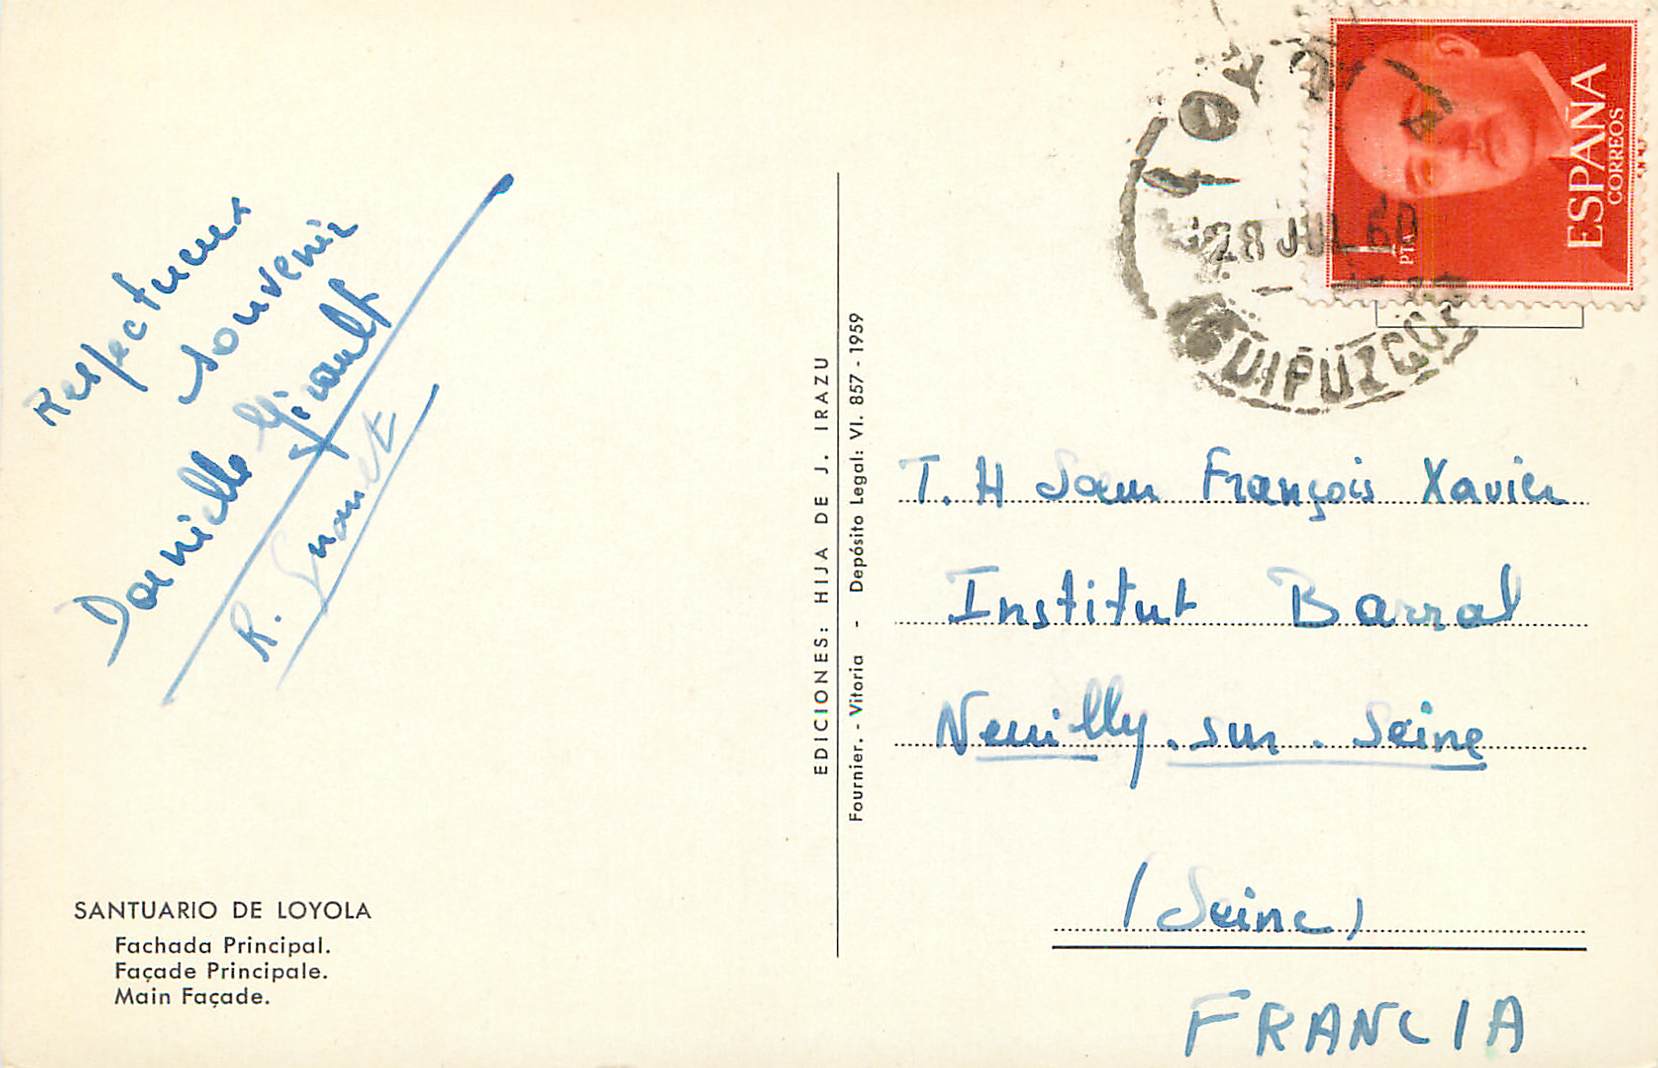 Respectueux
souvenir
Danielle Girault
R.
SANTUARIO DE LOYOLA
Fachada Principal.
Façade Principale.
Main Façade.
EDICIONES: HIJA DE J. IRAZU
Fournier. - Vitoria - Depósito Legal: VI. 857 - 1959
ESPAÑA
CORREOS
1 PTA
LOYOLA
28 JUL 60
GUIPUZCOA
T. H Soeur François Xavier
Institut Barral
Neuilly-sur-Seine
(Seine)
FRANCIA